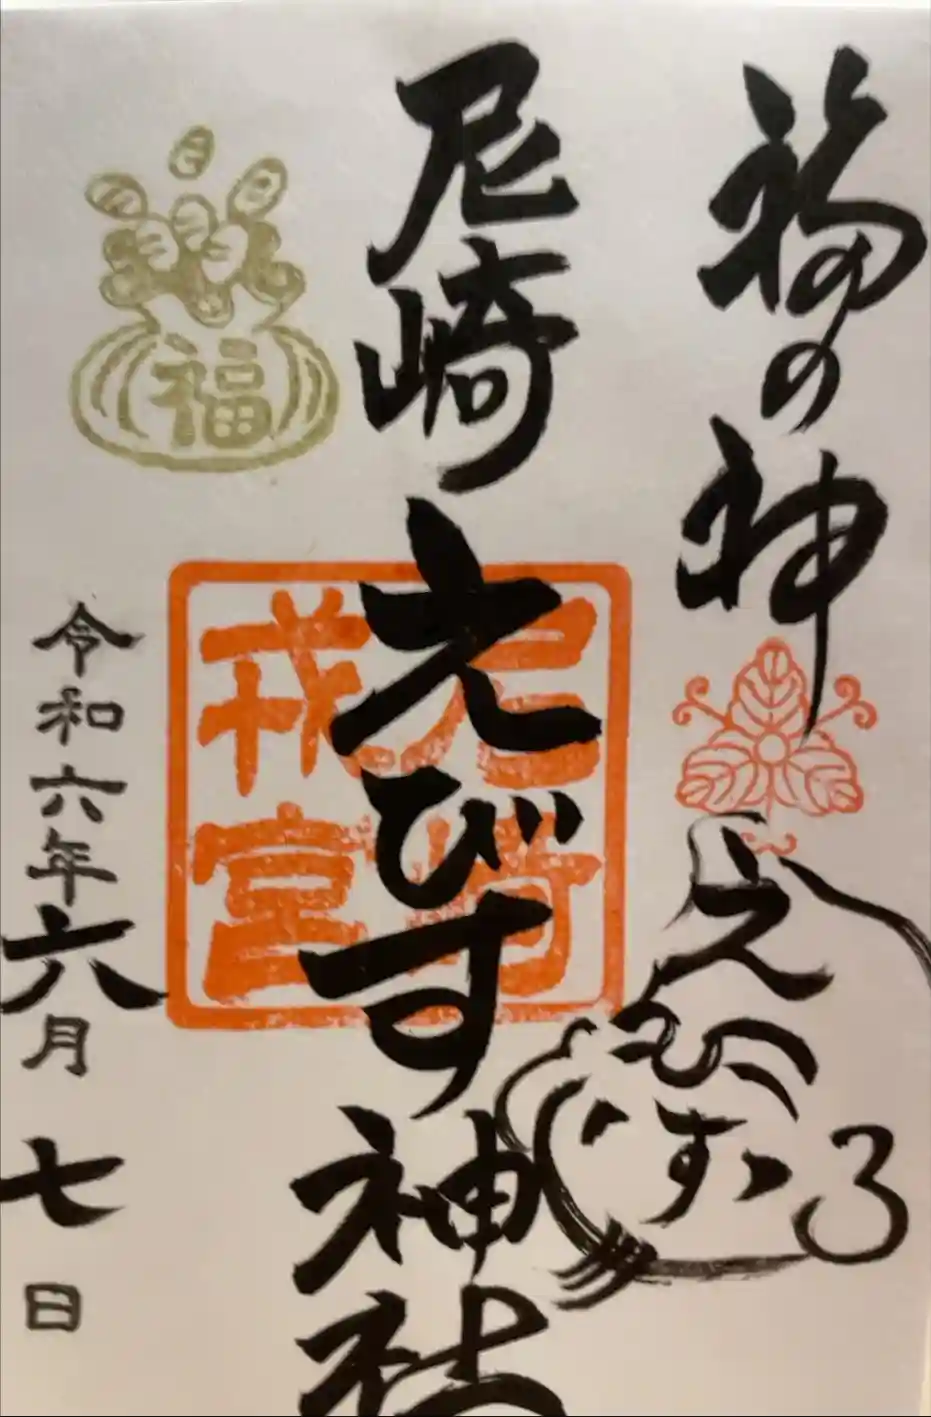 福の神
えびす
尼崎えびす神社
尼崎
戎宮
福
令和六年六月七日